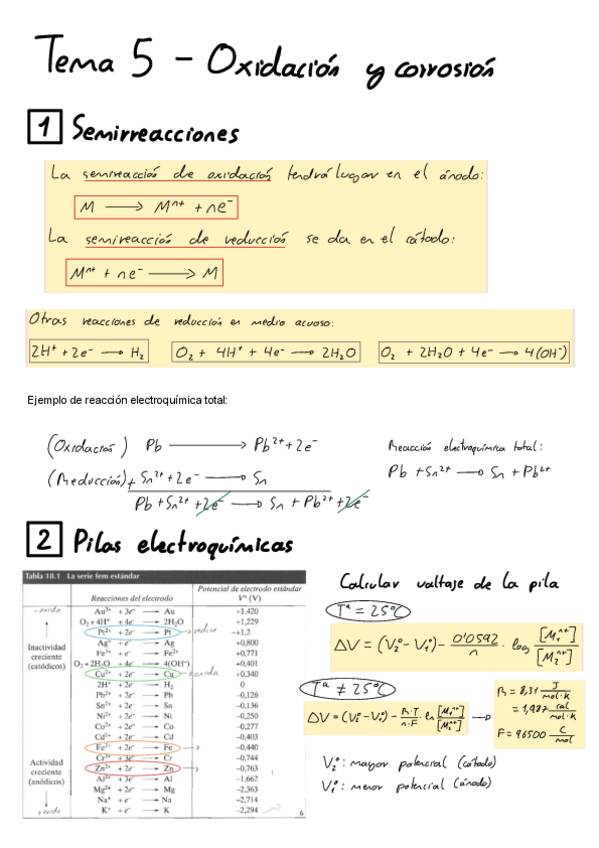 Tema 5 - Oxidación y corrosión
1 Semirreacciones
La semireacción de oxidación tendrá lugar en el ánodo:
M → Mⁿ⁺ + ne⁻
La semireacción de reducción se da en el cátodo:
Mⁿ⁺ + ne⁻ → M
Otras reacciones de reducción en medio acuoso:
2H⁺ + 2e⁻ → H₂
O₂ + 4H⁺ + 4e⁻ → 2H₂O
O₂ + 2H₂O + 4e⁻ → 4(OH⁻)
Ejemplo de reacción electroquímica total:
(Oxidación) Pb → Pb²⁺ + 2e⁻
(Reducción) + Sn²⁺ + 2e⁻ → Sn
Pb + Sn²⁺ + 2e⁻ → Sn + Pb²⁺ + 2e⁻
Reacción electroquímica total:
Pb + Sn²⁺ → Sn + Pb²⁺
2 Pilas electroquímicas
Tabla 18.1 La serie fem estándar
Reacciones del electrodo
Potencial de electrodo estándar V° (V)
Au³⁺ + 3e⁻ → Au +1,420
O₂ + 4H⁺ + 4e⁻ → 2H₂O +1,229
Pt²⁺ + 2e⁻ → Pt ~+1,2
Ag⁺ + e⁻ → Ag +0,800
Fe³⁺ + e⁻ → Fe²⁺ +0,771
O₂ + 2H₂O + 4e⁻ → 4(OH⁻) +0,401
Cu²⁺ + 2e⁻ → Cu +0,340
2H⁺ + 2e⁻ → H₂ 0
Pb²⁺ + 2e⁻ → Pb -0,126
Sn²⁺ + 2e⁻ → Sn -0,136
Ni²⁺ + 2e⁻ → Ni -0,250
Co²⁺ + 2e⁻ → Co -0,277
Cd²⁺ + 2e⁻ → Cd -0,403
Fe²⁺ + 2e⁻ → Fe -0,440
Cr³⁺ + 3e⁻ → Cr -0,744
Zn²⁺ + 2e⁻ → Zn -0,763
Al³⁺ + 3e⁻ → Al -1,662
Mg²⁺ + 2e⁻ → Mg -2,363
Na⁺ + e⁻ → Na -2,714
K⁺ + e⁻ → K -2,294
Inactividad creciente (catódicos)
Actividad creciente (anódicos)
6
Calcular voltaje de la pila
Tª = 25°C
ΔV = (V₂° - V₁°) - 0'0592/n · log [M₁ⁿ⁺]/[M₂ⁿ⁺]
Tª ≠ 25°C
ΔV = (V₂° - V₁°) - R·T/n·F · ln [M₁ⁿ⁺]/[M₂ⁿ⁺] →
R = 8,31 J/mol·K
= 1,987 cal/mol·K
F = 96500 C/mol
V₂°: mayor potencial (cátodo)
V₁°: menor potencial (ánodo)